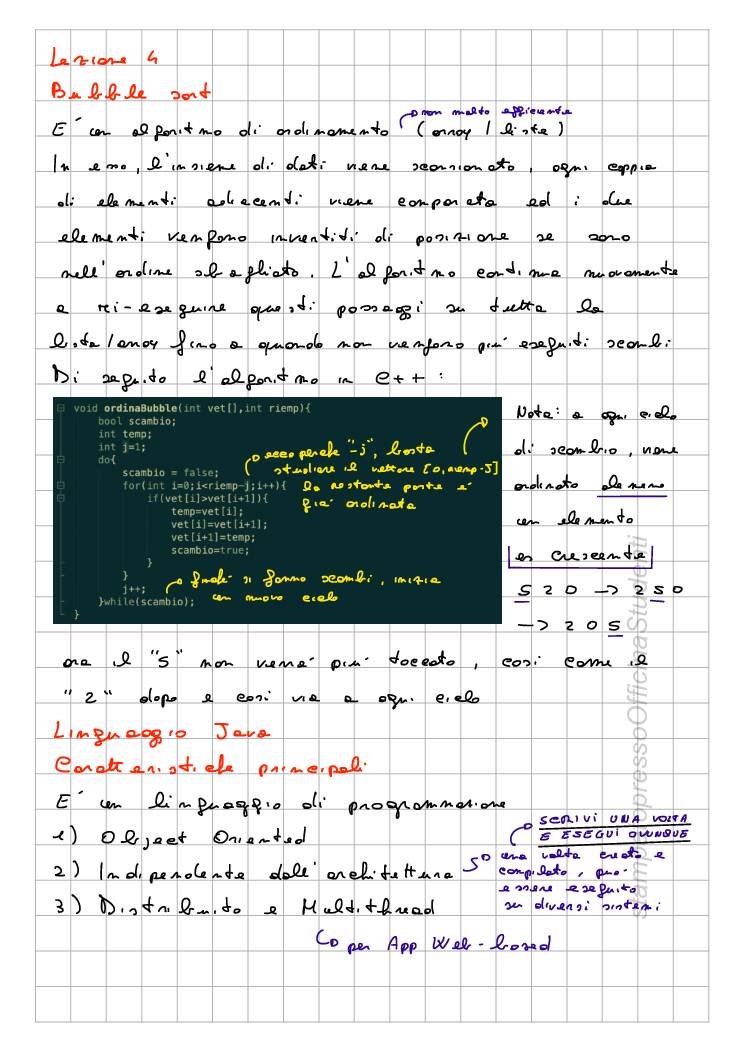 Lezione 4
Bubble sort
non molto efficiente
E' un algoritmo di ordinamento (array / liste)
In esso, l'insieme di dati viene scansionato, ogni coppia
di elementi adiacenti viene comparata ed i due
elementi vengono invertiti di posizione se sono
nell'ordine sbagliato. L'algoritmo continua nuovamente
a ri-eseguire questi passaggi su tutta la
lista/array fino a quando non vengono più eseguiti scambi
Di seguito l'algoritmo in C++ :
void ordinaBubble(int vet[],int riemp){
bool scambio;
int temp;
int j=1;
do{
scambio = false;
for(int i=0;i<riemp-j;i++){
if(vet[i]>vet[i+1]){
temp=vet[i];
vet[i]=vet[i+1];
vet[i+1]=temp;
scambio=true;
}
}
j++;
}while(scambio);
}
ecco perché "-j", basta
studiare il vettore [0,riemp-J]
la restante parte è
già ordinata
finché si fanno scambi, inizia
un nuovo ciclo
Nota: a ogni ciclo
di scambio, viene
ordinato almeno
un elemento
es crescente
5 2 0 -> 2 5 0
-> 2 0 5
ora il "5" non verrà più toccato, così come il
"2" dopo e così via a ogni ciclo
Linguaggio Java
Caratteristiche principali
E' un linguaggio di programmazione
1) Object Oriented
2) Indipendente dall'architettura
SCRIVI UNA VOLTA
E ESEGUI OVUNQUE
una volta creato e
compilato, può
essere eseguito
su diversi sistemi
3) Distribuito e Multithread
per App Web-based